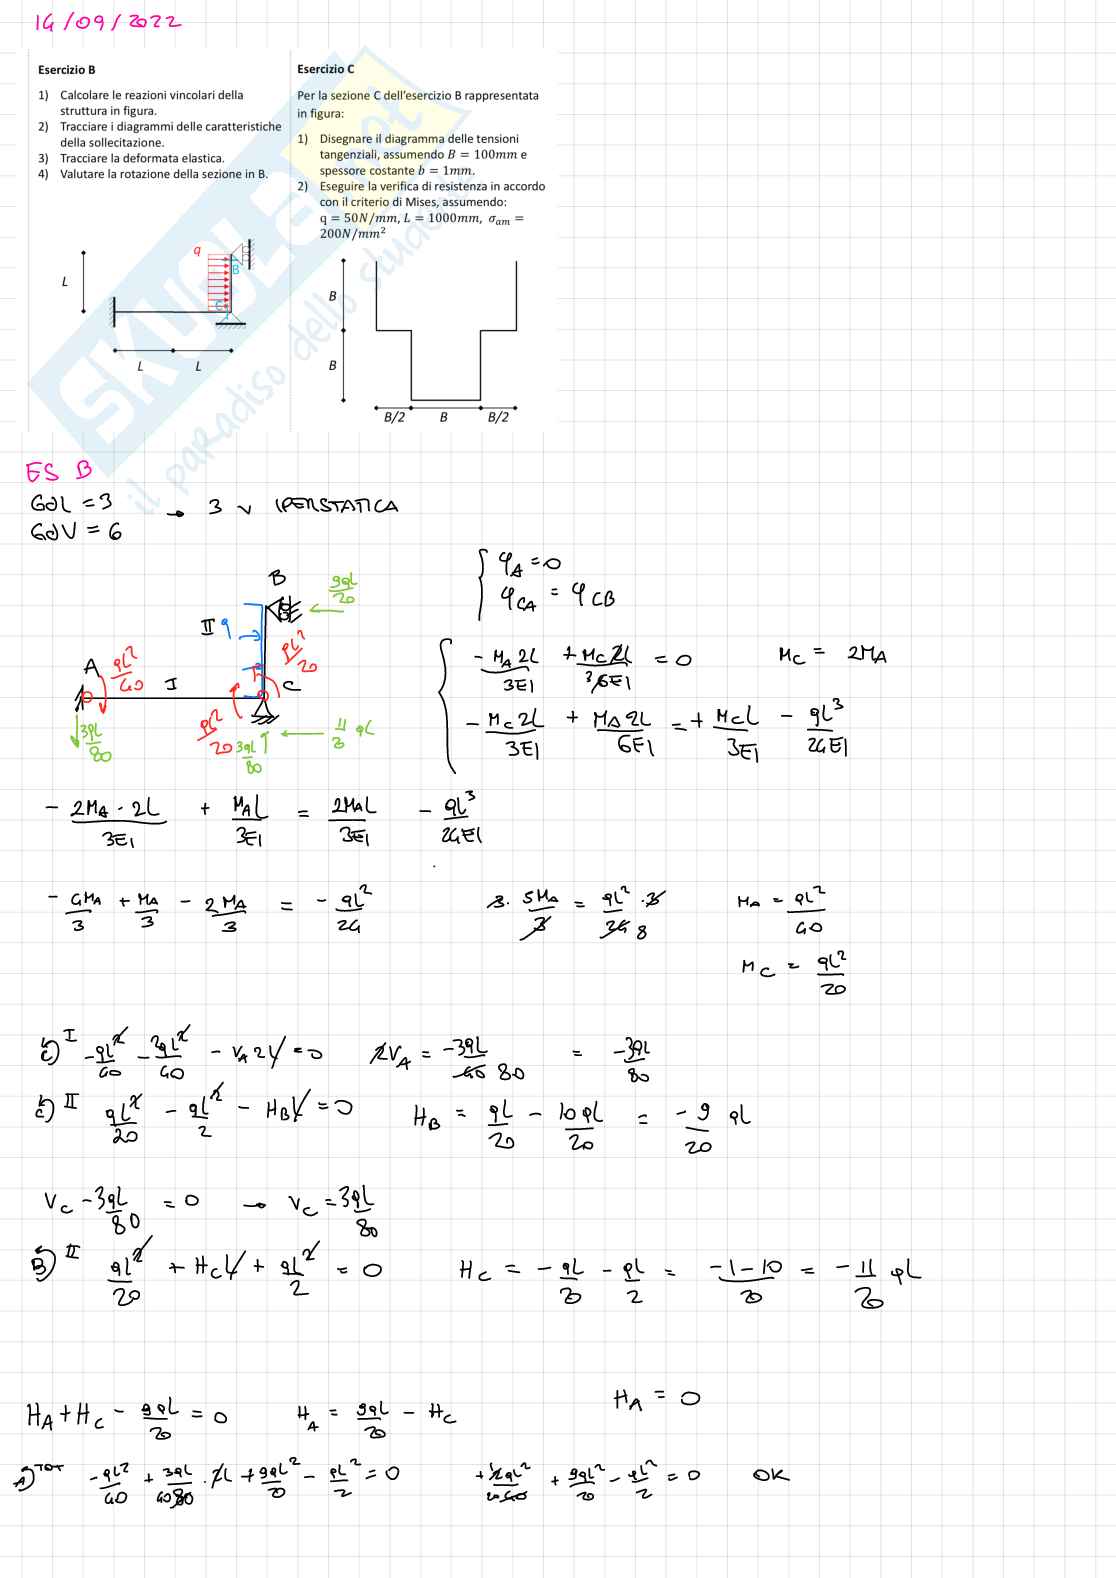 14/09/2022
Esercizio B
1) Calcolare le reazioni vincolari della
struttura in figura.
2) Tracciare i diagrammi delle caratteristiche
della sollecitazione.
3) Tracciare la deformata elastica.
4) Valutare la rotazione della sezione in B.
q
B
C
L
L L
Esercizio C
Per la sezione C dell'esercizio B rappresentata
in figura:
1) Disegnare il diagramma delle tensioni
tangenziali, assumendo B = 100mm e
spessore costante b = 1mm.
2) Eseguire la verifica di resistenza in accordo
con il criterio di Mises, assumendo:
q = 50N/mm, L = 1000mm, σam =
200N/mm²
B
B
B/2 B B/2
SKUOLA.net
il paradiso dello studente
ES B
GdL = 3 → 3 v IPERSTATICA
GdV = 6
B 9qL/20
II q
A qL²/40 I qL²/20 C
3qL/80 qL²/20 3qL/80 11/20 qL
φA = 0
φCA = φCB
- MA 2L/3EI + MC 2L/6EI = 0 MC = 2MA
- MC 2L/3EI + MA 2L/6EI = + MC L/3EI - qL³/24EI
- 2MA · 2L/3EI + MA L/3EI = 2MA L/3EI - qL³/24EI
- 4MA/3 + MA/3 - 2MA/3 = - qL²/24 3 · 5MA/3 = qL²/24 · 3 8 MA = qL²/40
MC = qL²/20
C) I - qL²/40 - 2qL²/40 - VA 2L = 0 2VA = -3qL/40 80 = -3qL/80
C) II qL²/20 - qL²/2 - HB L = 0 HB = qL/20 - 10qL/20 = -9/20 qL
VC - 3qL/80 = 0 → VC = 3qL/80
B) II qL²/20 + HC L + qL²/2 = 0 HC = - qL/20 - qL/2 = -1-10/20 = - 11/20 qL
HA + HC - 9qL/20 = 0 HA = 9qL/20 - HC HA = 0
A) TOT - qL²/40 + 3qL/80 · 2L + 9qL²/20 - qL²/2 = 0 + 2qL²/40 + 9qL²/20 - qL²/2 = 0 OK